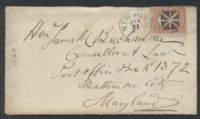 Hon James M Buchanan
Counsellor at Law
Post Office Box No 1372
Baltimore City
Maryland